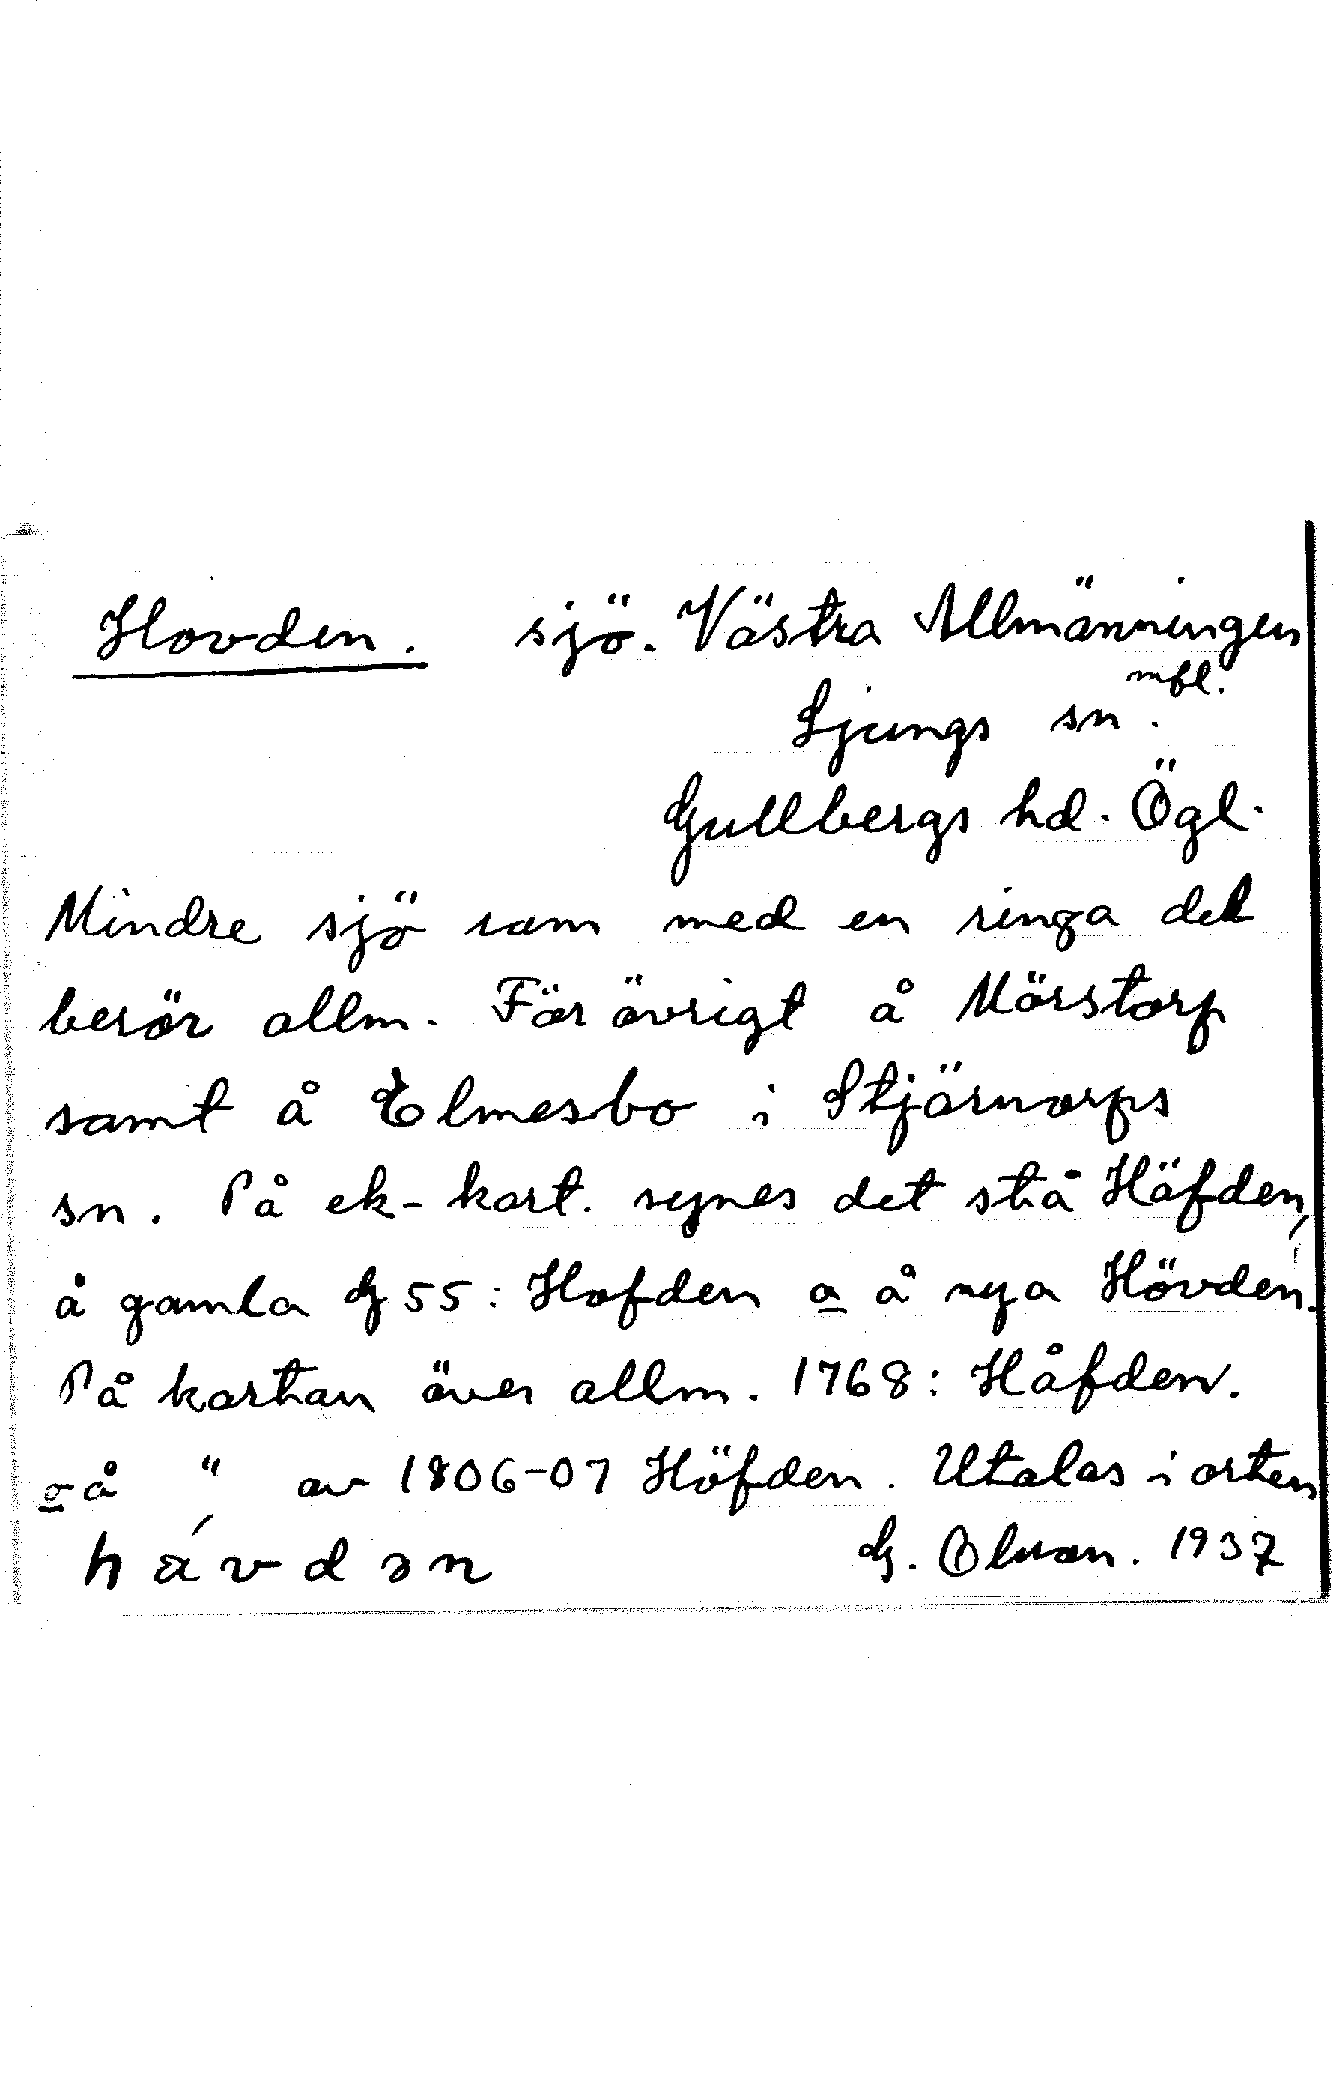 Hovden. sjö. Västra Allmänningen
mfl.
Ljungs sn.
Gullbergs hd. Ögl.
Mindre sjö som med en ringa del
berör allm. För övrigt å Mörstorp
samt å Elmesbo i Stjärnorps
sn. På ek-kart. synes det stå Häfden,
å gamla G 55: Hofden o å nya Hövden.
På kartan över allm. 1768: Håfden.
o å " av 1806-07 Höfden. Utalas i orten
hávdən G. Olsson. 1937